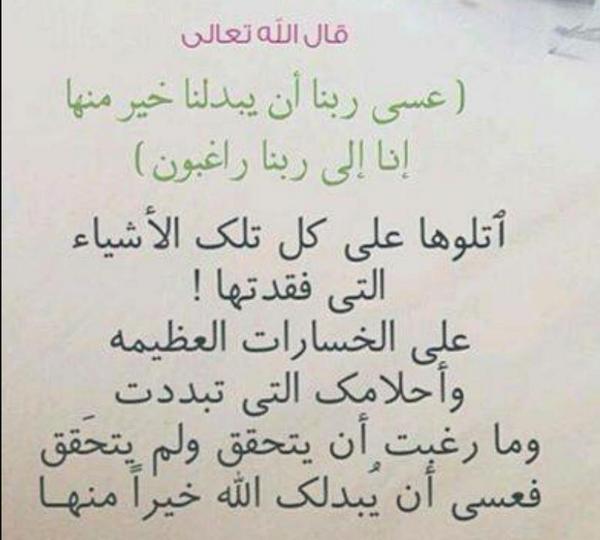 قال الله تعالى
( عسى ربنا أن يبدلنا خير منها
إنا إلى ربنا راغبون )
ٱتلوها على كل تلك الأشياء
التى فقدتها !
على الخسارات العظيمه
وأحلامك التى تبددت
وما رغبت أن يتحقق ولم يتحَقق
فعسى أن يُبدلك الله خيراً منهـا